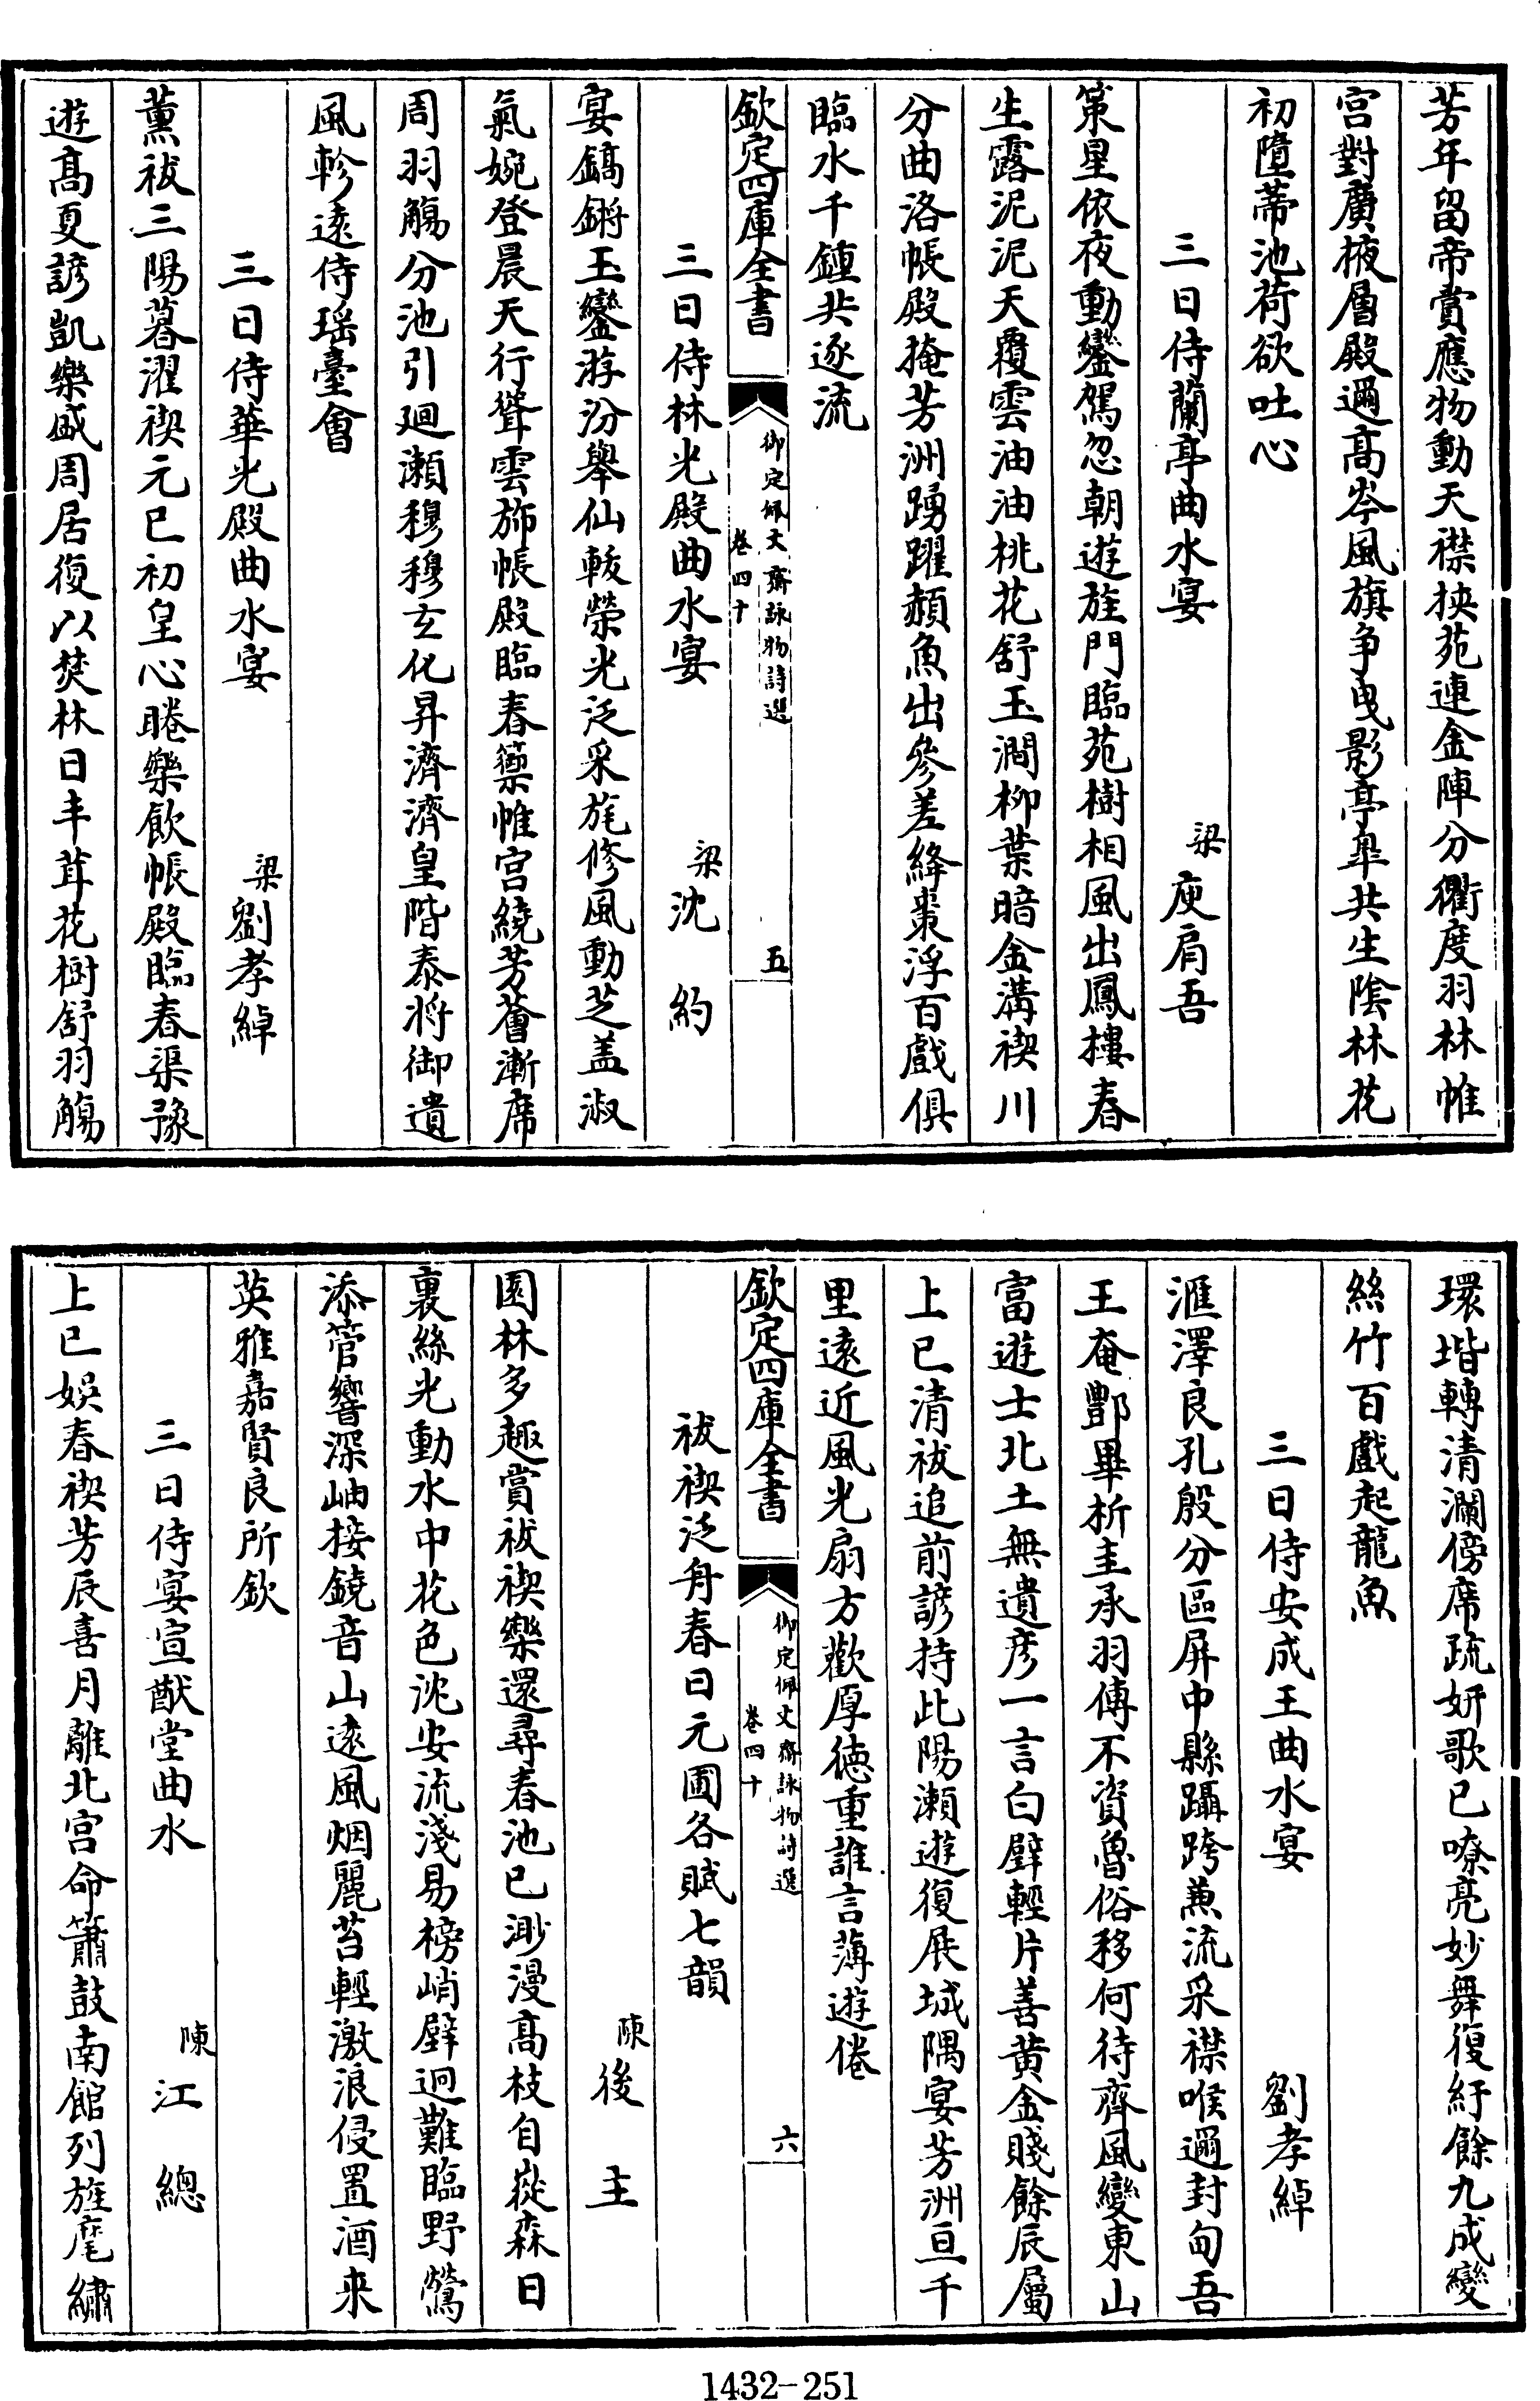 芳年留帝賞應物動天襟挾苑連金陣分衢度羽林帷
宫對廣掖層殿邇髙岑風旗争曳影亭臯共生陰林花
初墮蒂池荷欲吐心
三日侍蘭亭曲水宴　梁庾肩吾
策星依夜動鑾駕忽朝遊旌門臨苑樹相風出鳳樓春
生露泥泥天覆雲油油桃花舒玉澗柳葉暗金溝禊川
分曲洛帳殿掩芳洲踴躍頳魚出參差絳棗浮百戲俱
臨水千鍾共逐流
欽定四庫全書　御定佩文齋詠物詩選　卷四十　五
三日侍林光殿曲水宴　梁沈約
宴鎬鏘玉鑾游汾舉仙軷榮光泛采旄修風動芝盖淑
氣婉登晨天行聳雲斾帳殿臨春籞帷宫繞芳薈漸席
周羽觴分池引廻瀨穆穆玄化昇濟濟皇階泰将御遺
風軫遠侍瑶臺會
三日侍華光殿曲水宴　梁劉孝綽
薰祓三陽暮濯禊元巳初皇心睠樂飲帳殿臨春渠豫
遊髙夏諺凱樂盛周居復以焚林日丰茸花樹舒羽觴
環堦轉清瀾傍席疏妍歌已嘹亮妙舞復紆餘九成變
絲竹百戲起龍魚
三日侍安成王曲水宴　劉孝綽
滙澤良孔殷分區屏中縣躡跨兼流采襟喉邇封甸吾
王奄酆畢析圭承羽傳不資魯俗移何待齊風變東山
富遊士北土無遺彦一言白璧輕片善黄金賤餘辰屬
上巳清祓追前諺持此陽瀨遊復展城隅宴芳洲亘千
里遠近風光扇方歡厚徳重誰言薄遊倦
欽定四庫全書　御定佩文齋詠物詩選　卷四十　六
祓禊泛舟春日元圃各賦七韻
陳後主
園林多趣賞祓禊樂還尋春池已渺漫髙枝自嶷森日
裏絲光動水中花色沈安流淺易榜峭壁迥難臨野鶯
添管響深岫接鐃音山遠風烟麗苔輕激浪侵置酒来
英雅嘉賢良所欽
三日侍宴宣猷堂曲水　陳江總
上巳娱春禊芳辰喜月離北宫命簫鼓南館列旌麾繡
1432-251